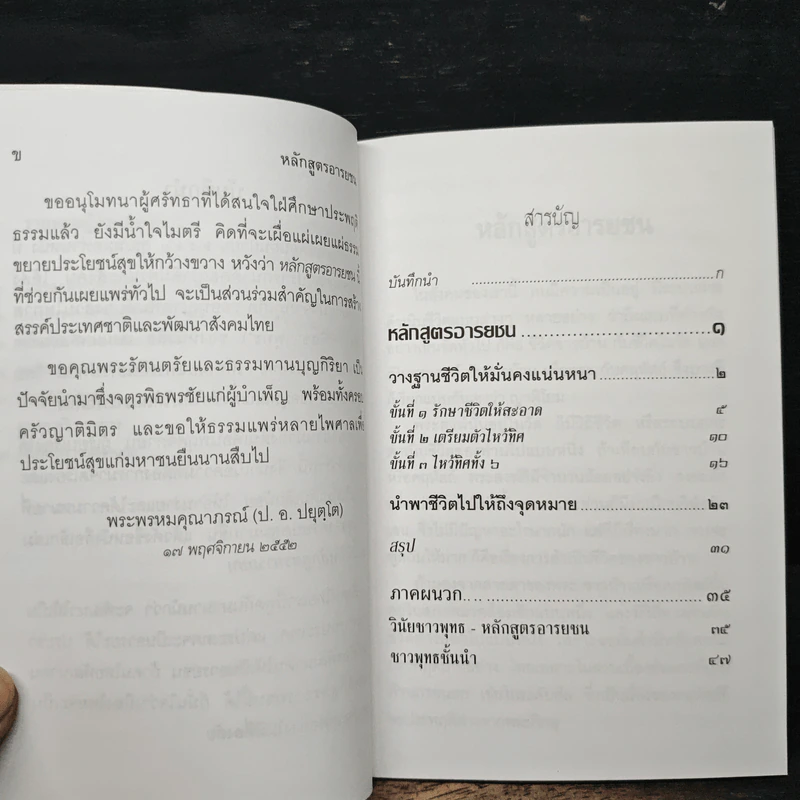 ข
หลักสูตรอารยชน
ขออนุโมทนาผู้ศรัทธาที่ได้สนใจใฝ่ศึกษาประพฤติ
ธรรมแล้ว ยังมีน้ำใจไมตรี คิดที่จะเผื่อแผ่เผยแผ่ธรรม
ขยายประโยชน์สุขให้กว้างขวาง หวังว่า หลักสูตรอารยชน นี้
ที่ช่วยกันเผยแพร่ทั่วไป จะเป็นส่วนร่วมสำคัญในการสร้าง
สรรค์ประเทศชาติและพัฒนาสังคมไทย
ขอคุณพระรัตนตรัยและธรรมทานบุญกิริยา เป็น
ปัจจัยนำมาซึ่งจตุรพิธพรชัยแก่ผู้บำเพ็ญ พร้อมทั้งครอบ
ครัวญาติมิตร และขอให้ธรรมแพร่หลายไพศาลเพื่อ
ประโยชน์สุขแก่มหาชนยืนนานสืบไป
พระพรหมคุณาภรณ์ (ป. อ. ปยุตฺโต)
๑๗ พฤศจิกายน ๒๕๕๒
สารบัญ
บันทึกนำ ........................................ก
หลักสูตรอารยชน ................................๑
วางฐานชีวิตให้มั่นคงแน่นหนา ....................๒
ขั้นที่ ๑ รักษาชีวิตให้สะอาด ๕
ขั้นที่ ๒ เตรียมตัวไหว้ทิศ ๑๐
ขั้นที่ ๓ ไหว้ทิศทั้ง ๖ ๑๖
นำพาชีวิตไปให้ถึงจุดหมาย ........................๒๓
สรุป ๓๑
ภาคผนวก........................................๓๕
วินัยชาวพุทธ - หลักสูตรอารยชน ๓๕
ชาวพุทธชั้นนำ ๔๗